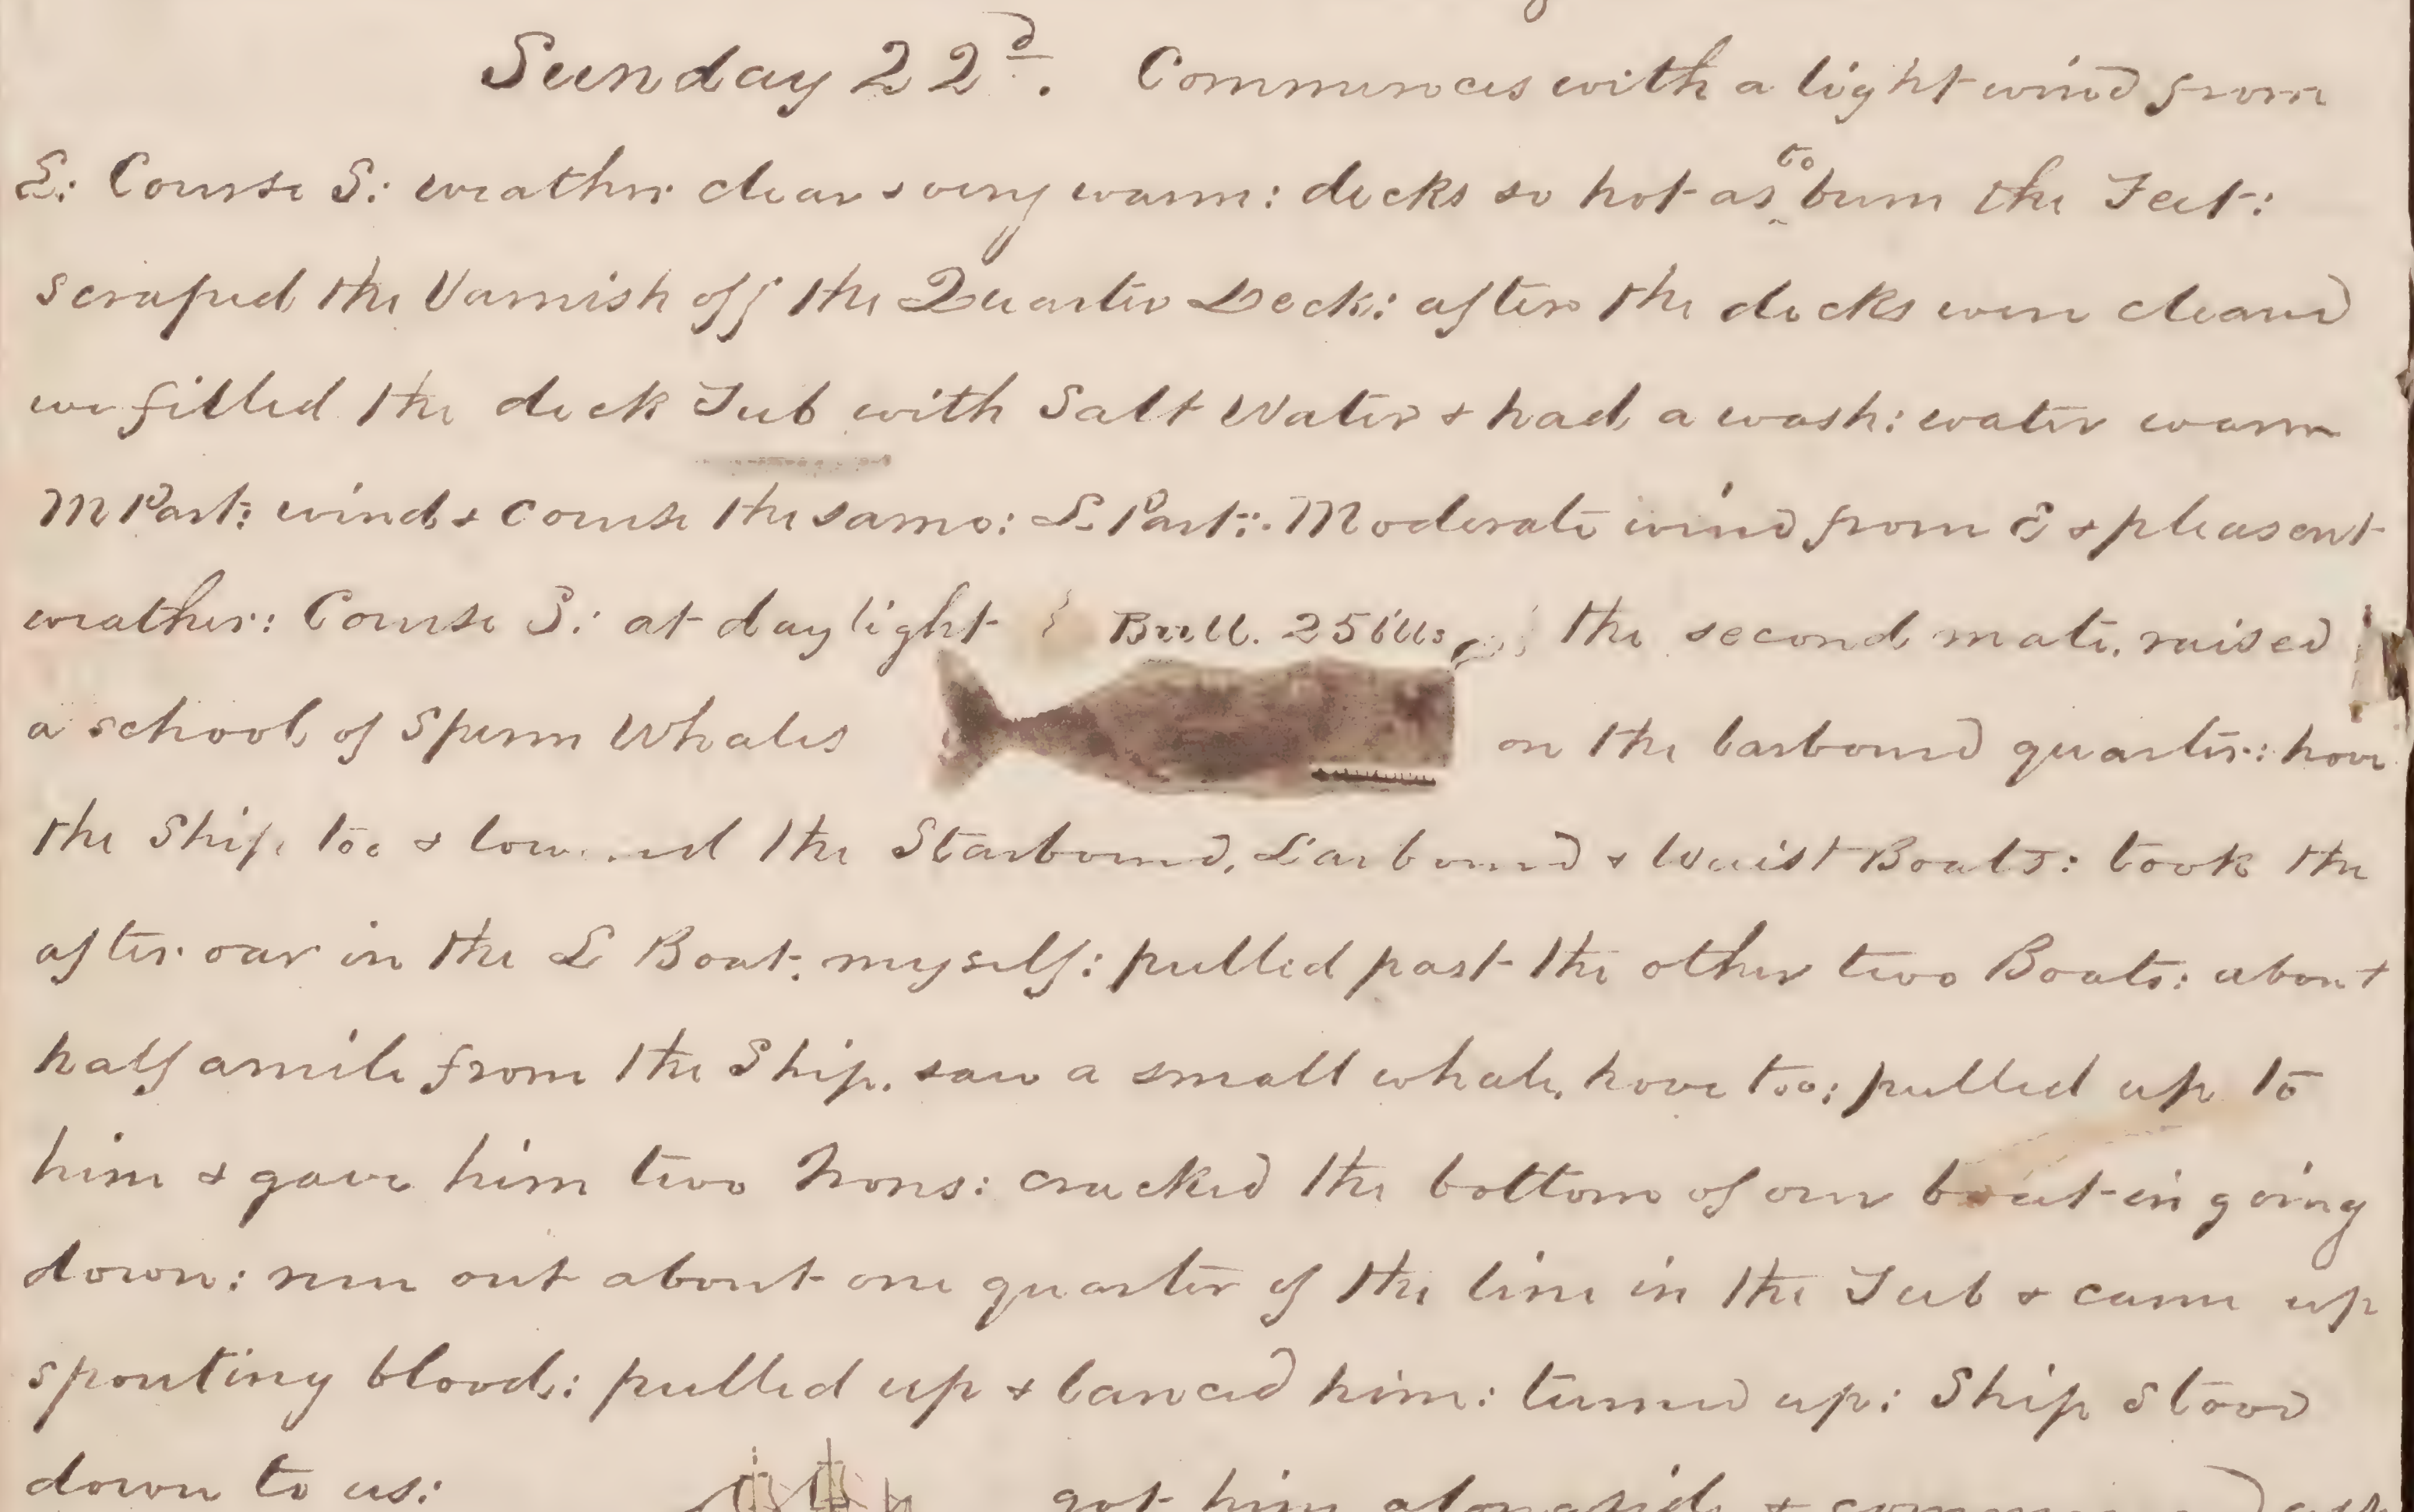 Sunday 22d. Commences with a light wind from
E: Course S: weather clear & very warm: decks so hot as to burn the Feet:
scraped the Varnish off the Quarter Deck: after the decks were cleand
we filled the deck Tub with Salt Water & had a wash: water warm
M Part: wind & Course the same: L Part: Moderate wind from E & pleasent
weather: Course S: at daylight Bull. 25 blls the second mate, raised
a school of Sperm Whales on the larbourd quarter: hove
the Ship too & lowered the Starbourd, Larbourd & Waist Boats: took the
after oar in the L Boat, myself: pulled past the other two Boats: about
half a mile from the Ship. saw a small whale, hove too: pulled up to
him & gave him two Irons: cracked the bottom of our boat in going
down: run out about one quarter of the line in the Tub & came up
spouting blood: pulled up & lanced him: turned up: Ship stood
down to us: got him alongside &